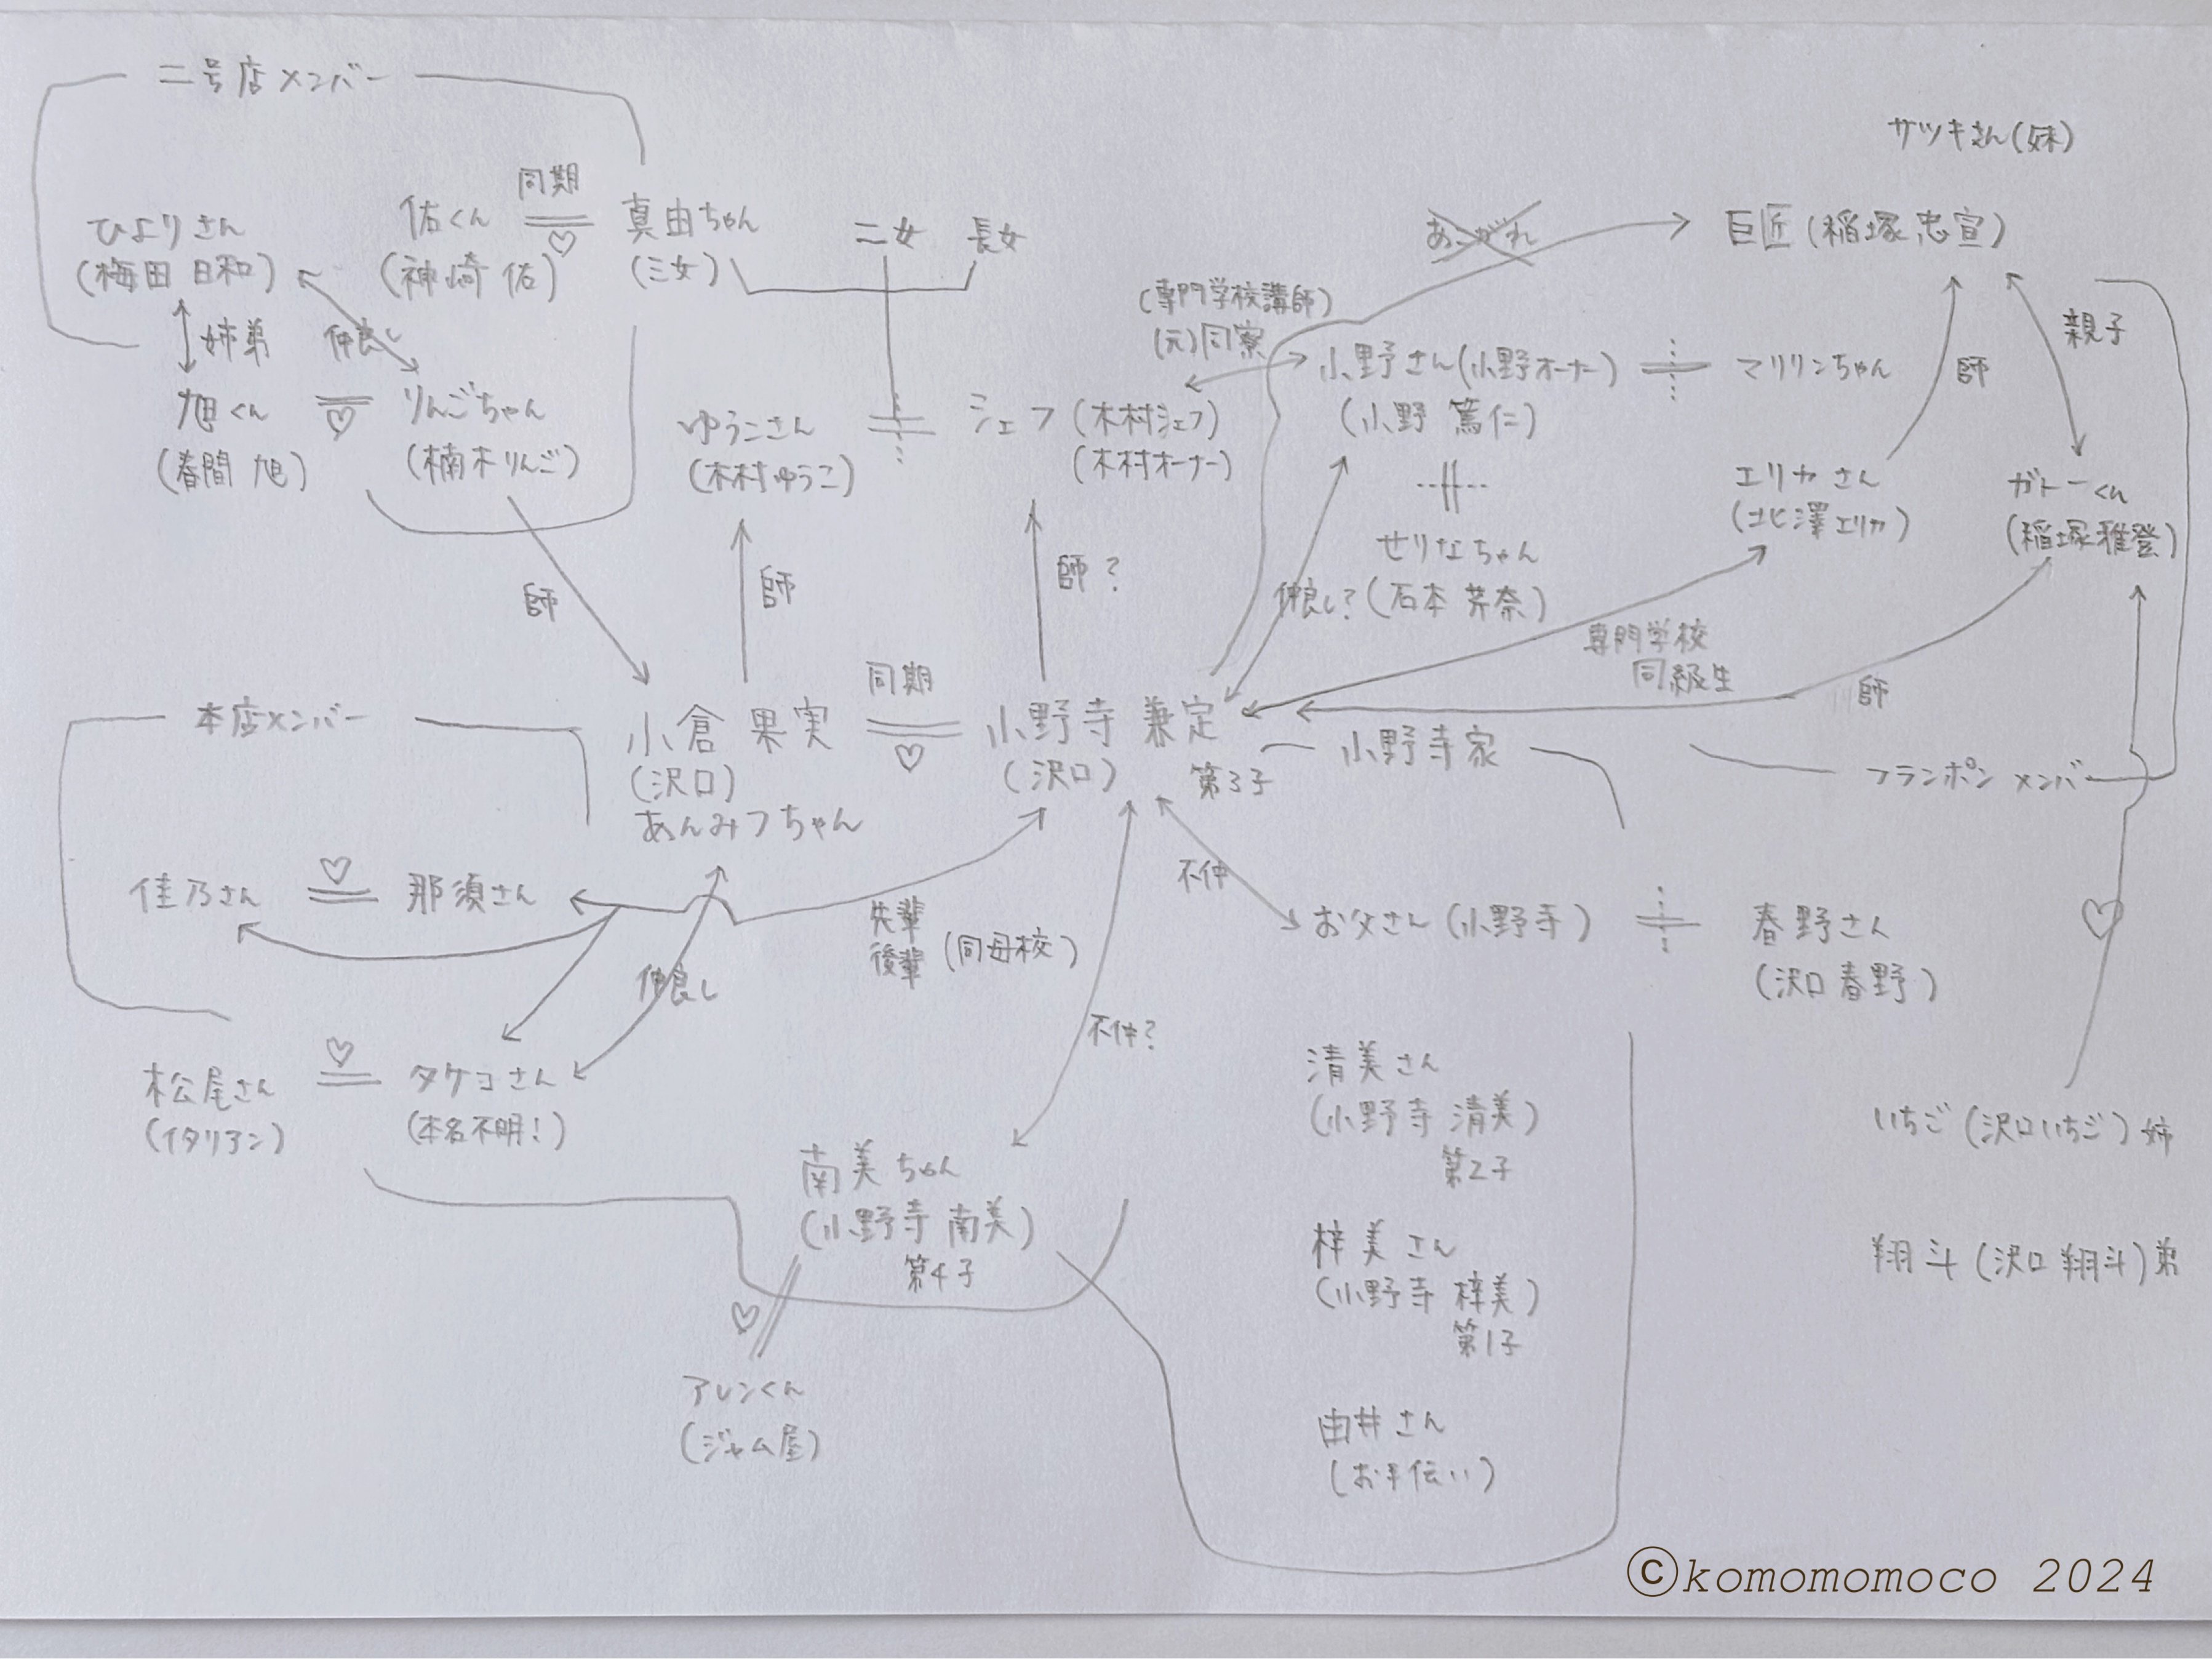 二号店メンバー
サツキさん(妹)
同期
佑くん
真由ちゃん
(神崎 佑)
(三女)
ひよりさん
(梅田 日和)
二女
長女
あこがれ
巨匠(稲塚 忠宣)
姉弟
仲良し
(専門学校講師)
(元)同寮
小野さん(小野オーナー)
(小野 篤仁)
マリリンちゃん
師
親子
旭くん
(春間 旭)
りんごちゃん
(楠木りんご)
ゆうこさん
(木村ゆうこ)
シェフ(木村シェフ)
(木村オーナー)
エリカさん
(北澤エリカ)
ガトーくん
(稲塚雅登)
せりなちゃん
(石本 芹奈)
仲良し?
師
師
師?
専門学校
同級生
師
本店メンバー
小倉 果実
(沢口)
あんみつちゃん
同期
小野寺 兼定
(沢口)
第3子
小野寺家
フランポンメンバー
佳乃さん
那須さん
先輩
後輩
(同母校)
不仲
お父さん(小野寺)
春野さん
(沢口春野)
仲良し
不仲?
松尾さん
(イタリアン)
タケコさん
(本名不明!)
清美さん
(小野寺 清美)
第2子
いちご(沢口いちご)姉
南美ちゃん
(小野寺 南美)
第4子
梓美さん
(小野寺 梓美)
第1子
翔斗(沢口 翔斗)弟
アレンくん
(ジャム屋)
由井さん
(お手伝い)
©komomomoco 2024